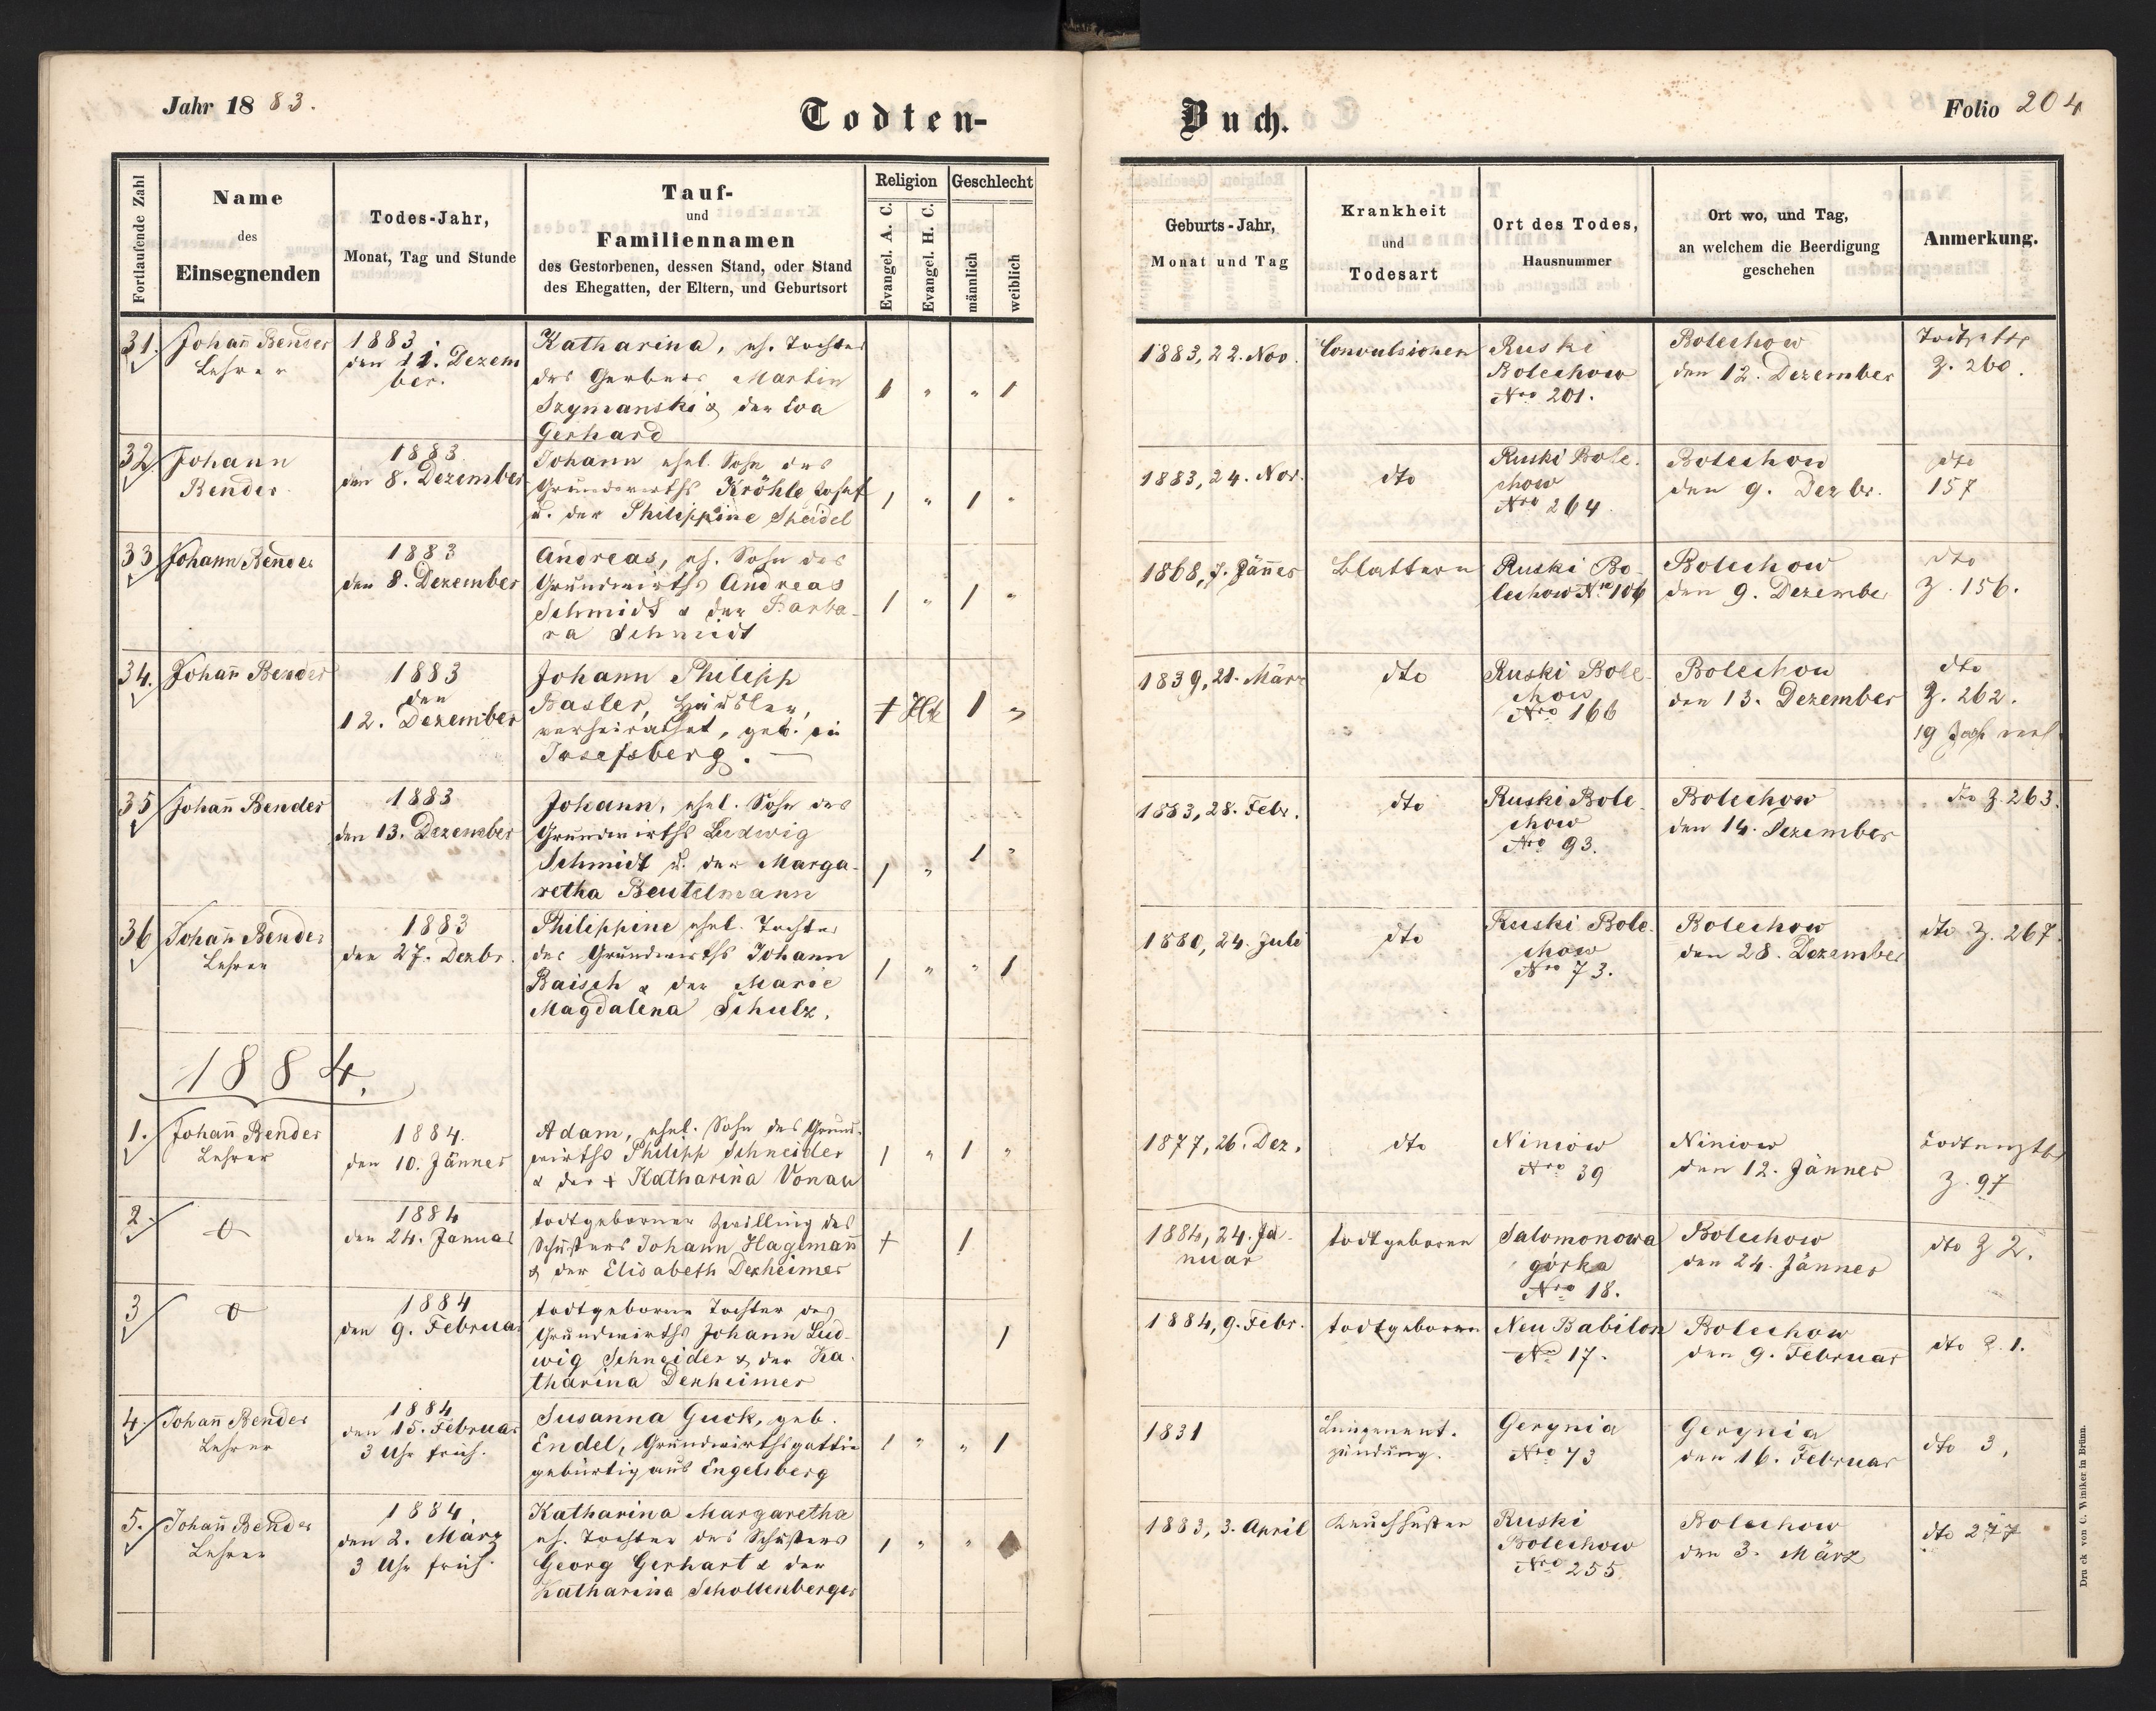 Jahr 1883.
Todten-
Buch.
Folio 204
Fortlaufende Zahl
Name
des
Einsegnenden
Todes-Jahr,
Monat, Tag und Stunde
Tauf-
und
Familiennamen
des Gestorbenen, dessen Stand, oder Stand
des Ehegatten, der Eltern, und Geburtsort
Religion
Evangel. A. C.
Evangel. H. C.
Geschlecht
männlich
weiblich
Geburts-Jahr,
Monat und Tag
Krankheit
und
Todesart
Ort des Todes,
Hausnummer
Ort wo, und Tag,
an welchem die Beerdigung
geschehen
Anmerkung.
31.
Johañ Bender
Lehrer
1883
den 11. Dezem
ber.
Katharina, eh. Tochter
des Gerbers Martin
Szymanski & der Eva
Gerhard
1 " " 1
1883, 22. Nov.
Convulsionen
Ruski
Bolechow
Nro 201.
Bolechow
den 12. Dezember
Z. 260.
32
Johann
Bender
1883
den 8. Dezember
Johann ehel. Sohn des
Grundwirths Kröhle Josef
u. der Philippine Speidel
1 " 1 "
1883, 24. Nov.
dto
Ruski Bole.
chow
Nro 264
Bolechow
den 9. Dezbr.
dto
157
33
Johann Bender
1883
den 8. Dezember
Andreas, eh. Sohn des
Grundwirths Andreas
Schmidt & der Barba-
ra Schmidt
1 " 1 "
1868, 7. Jänner
Blattern
Ruski Bo-
lechow Nro 106
Bolechow
den 9. Dezember
dto
Z. 156.
34.
Johañ Bender
1883
den
12. Dezember
Johann Philipp
Basler, Häusler,
verheirathet, geb. in
Josefsberg.
1 "
1839, 21. März
dto
Ruski Bole-
chow
Nro 166
Bolechow
den 13. Dezember
dto
Z. 262.
35
Johañ Bender
1883
den 13. Dezember
Johann, ehel. Sohn des
Grundwirths Ludwig
Schmidt u. der Marga-
retha Beutelmann
1 " 1 "
1883, 28. Febr.
dto
Ruski Bole-
chow
Nro 93.
Bolechow
den 14. Dezember
dto Z. 263.
36
Johañ Bender
Lehrer
1883
den 27. Dezbr.
Philippine ehel. Tochter
des Grundwirths Johann
Baisch & der Marie
Magdalena Schulz.
1 " " 1
1880, 24. Juli
dto
Ruski Bole.
chow
Nro 73.
Bolechow
den 28. Dezember
dto Z. 267.
1884.
1.
Johañ Bender
Lehrer
1884.
den 10. Jänner
Adam, ehel. Sohn des Grund-
wirths Philipp Schneider
& der + Katharina Vonau
1 " 1 "
1877, 26. Dez.
dto
Niniow
Nro 39
Niniow
den 12. Jänner
Z. 97
2.
1884
den 24. Januar
todtgeborner Zwilling des
Schusters Johann Hagemañ
& der Elisabeth Dexheimer
+ 1
1884, 24. Ja-
nuar
todtgeboren
Salomonowa
górka
Nro 18.
Bolechow
den 24. Jänner
dto Z 2.
3
1884
den 9. Februar
todtgeborne Tochter des
Grundwirths Johann Lud-
wig Schneider & der Ka-
tharina Dexheimer
1
1884, 9. Febr.
todtgeboren
Neu Babilon
No 17.
Bolechow
den 9. Februar
dto Z. 1.
4.
Johañ Bender
Lehrer
1884
den 15. Februar
3 Uhr früh.
Susanna Guck, geb.
Endel, Grundwirthsgattin
gebürtig aus Engelsberg
1 " " 1
1831
Lungenent-
zündung.
Gerynia
Nro 73
Gerynia
den 16. Februar
dto 3,
5.
Johañ Bender
Lehrer
1884
den 2. März
3 Uhr früh.
Katharina Margaretha
eh. Tochter des Schusters
Georg Gerhart & der
Katharina Schollenberger
1 " "
1883, 3. April
Keuchhusten
Ruski
Bolechow
Nro 255
Bolechow
den 3. März
dto 277
Druck von C. Winiker in Brünn.